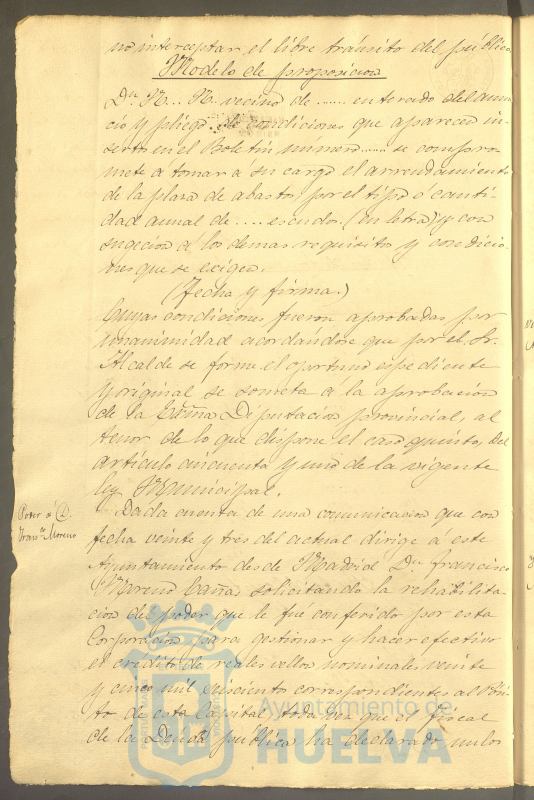 no interceptar el libre tránsito del público
Modelo de proposicion
Dn. N... N. vecino de ...... enterado del anun
cio y pliego de condiciones que aparecen in-
serto en el Boletin número...... se compro
mete á tomar á su cargo el arrendamiento
de la plaza de abasto, por el tipo ó canti-
dad anual de .... escudos (en letra) y con
sugecion á los demas requisitos y condicio-
nes que se exigen.
(Fecha y firma.)
Cuyas condiciones fueron aprobadas por
unanimidad acordándose que por el Sr.
Alcalde se forme el oportuno espediente
y original se someta á la aprobacion
de la Escma Diputacion provincial, al
tenor de lo que dispone el caso quinto, del
artículo cincuenta y uno de la vigente
ley Municipal.
Poder a D.
Franco. Moreno
Dada cuenta de una comunicacion que con
fecha veinte y tres del actual dirige á este
Ayuntamiento desde Madrid Dn. Francisco
Moreno Cañas, solicitando la rehabilita
cion del poder que le fué conferido por esta
Corporacion para gestionar y hacer efectivo
el credito de reales vellon nominales veinte
y cinco mil seiscientos correspondientes al Pósi
to de esta Capital, toda vez que el Fiscal
de la Deuda pública ha declarado nulos
Ayuntamiento de
HUELVA